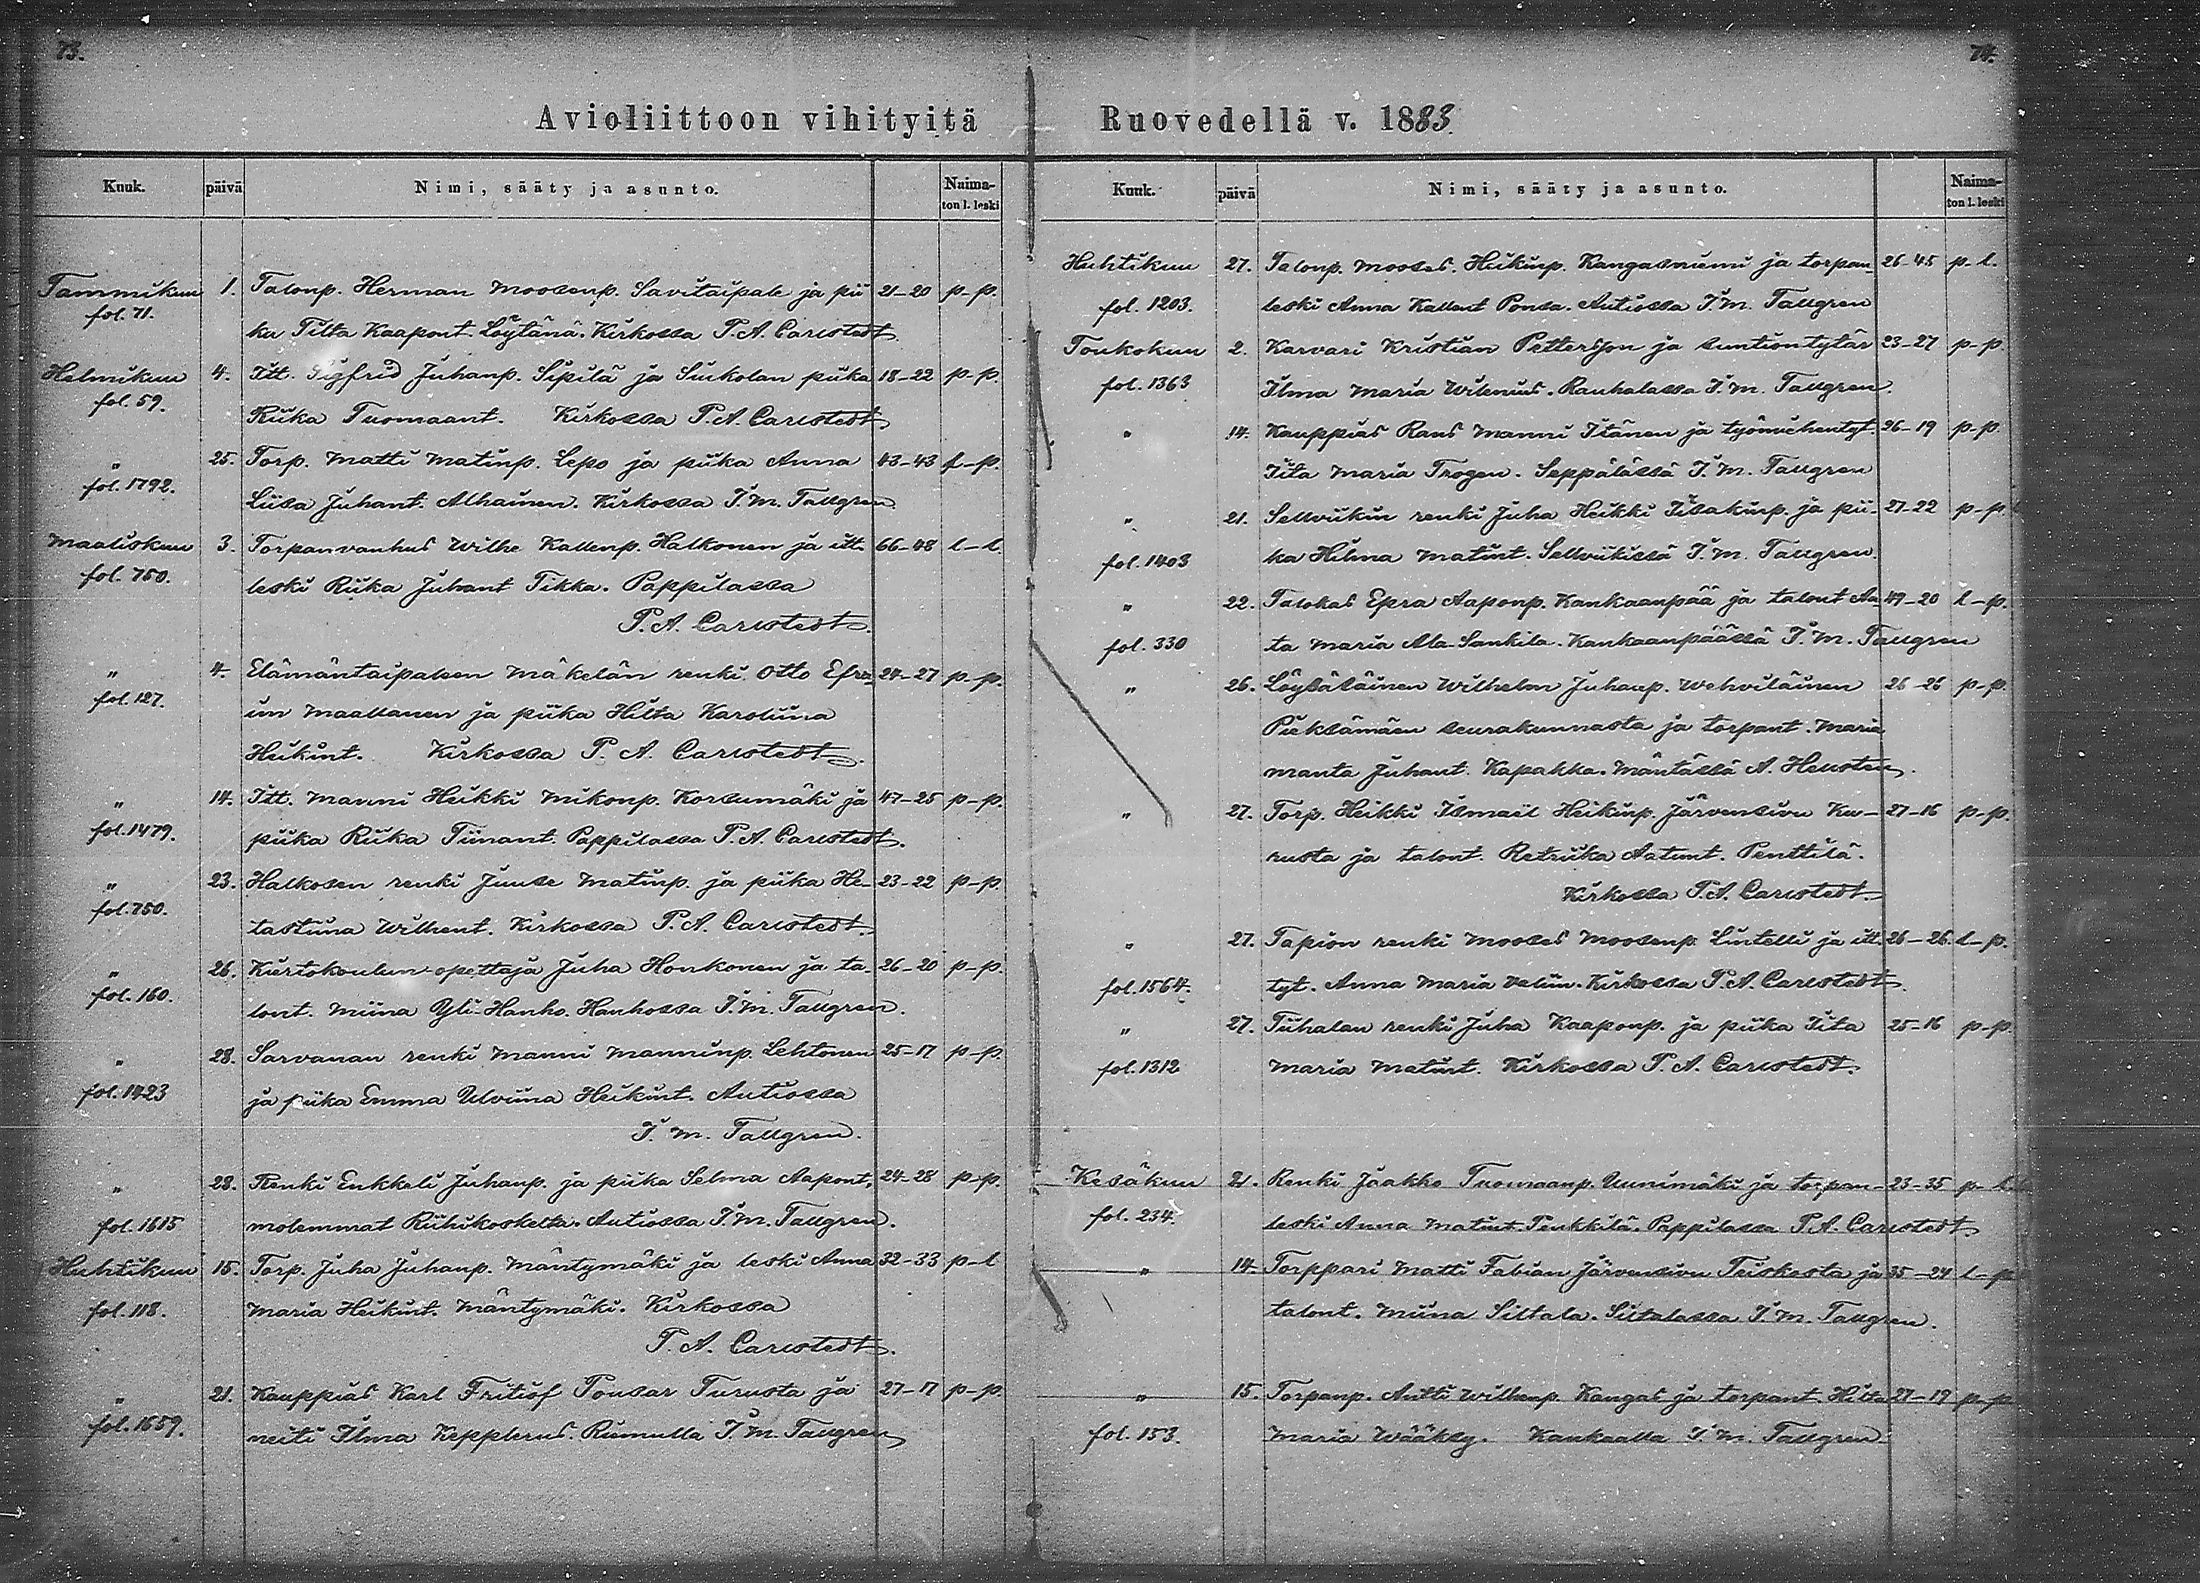 73.
Avioliittoon vihityitä
Kuuk. päivä Nimi, sääty ja asunto. Naimaton l. leski
Tammikuu 1. Talonp. Herman Moosenp. Savitaipale ja pii- 21-20 p-p.
fol. 71. ka Tilta Kaapont. Löytänä. Kirkossa P. A. Carlstedt.
Helmikuu 4. Itt. Sigfrid Juhanp. Sipilä ja Siukolan piika 18-22 p-p.
fol. 59. Riika Tuomaant. Kirkossa P. A. Carlstedt
" 25. Torp. Matti Matinp. Lepo ja piika Anna 43-43 l-p.
fol. 1792. Liisa Juhant. Alhainen. Kirkossa I. M. Tallgren
Maaliskuu 3. Torpanvanhus Wilhe Kallenp. Halkonen ja itt. 66-48 l-l.
fol. 750. leski Riika Juhant Tikka. Pappilassa
P. A. Carlstedt.
" 4. Elämäntaipaleen Mäkelän renki Otto Efra- 24-27 p-p.
fol. 127. im Maallanen ja piika Hilta Karoliina
Heikint. Kirkossa P. A. Carlstedt.
" 14. Itt. Manni Heikki Mikonp. Korsumäki ja 47-25 p-p.
fol. 1479. piika Riika Tiinant. Pappilassa P. A. Carlstedt.
" 23. Halkosen renki Juuse Matinp. ja piika He- 23-22 p-p.
fol. 750. tastiina Wilhent. Kirkossa P. A. Carlstedt.
" 26. Kiertokoulun-opettaja Juha Honkonen ja ta- 26-20 p-p.
fol. 160. lont. Miina Yli-Hanho. Hanhossa I. M. Tallgren.
" 28. Sarvanan renki Manni Manninp. Lehtonen 25-17 p-p.
fol. 1423 ja piika Emma Ulviina Heikint. Autiossa
I. M. Tallgren.
" 28. Renki Enkkeli Juhanp. ja piika Selma Aapont, 24-28 p-p.
fol. 1615 molemmat Riihikoskelta. Autiossa I. M. Tallgren.
Huhtikuu 15. Torp. Juha Juhanp. Mäntymäki ja leski Anna 32-33 p-l
fol. 118. Maria Heikint. Mäntymäki. Kirkossa
P. A. Carlstedt.
" 21. Kauppias Karl Fritiof Pousar Turusta ja 27-17 p-p.
fol. 1659. neiti Ilma Kepplerus. Riimulla I. M. Tallgren
74.
Ruovedellä v. 1883.
Kuuk. päivä Nimi, sääty ja asunto. Naimaton l. leski
Huhtikuu 27. Talonp. Mooses Heikinp. Kangasniemi ja torpan- 26-45 p-l.
fol. 1203. leski Anna Kallent Ponsa. Autiossa I. M. Tallgren
Toukokuu 2. Karvari Kristian Petterson ja suntiontytär 23-27 p-p.
fol. 1363 Ilma Maria Wilenius. Rauhalassa I. M. Tallgren.
" 14. Kauppias Rans Manni Itänen ja työmiehentyt. 26-19 p-p.
Iita Maria Trogen. Seppälässä I. M. Tallgren
" 21. Sellviikin renki Juha Heikki Iisakinp. ja pii- 27-22 p-p
fol. 1403 ka Hilma Matint. Sellviikissä I. M. Tallgren.
" 22. Talokas Epra Aaponp. Kankaanpää ja talont Aa- 49-20 l-p.
fol. 330 ta Maria Ala-Sankila. Kankaanpäässä I. M. Tallgren
" 26. Löysäläinen Wilhelm Juhanp. Wehviläinen 26-26 p-p.
Pieksämäen seurakunnasta ja torpant. Maria
manta Juhant. Kapakka. Mäntässä A. Hellsten.
" 27. Torp. Heikki Ismael Heikinp. Järvensivu Ku- 27-16 p-p.
rusta ja talont. Retriika Aatunt. Penttilä.
Kirkossa P. A. Carlstedt.
" 27. Tapion renki Mooses Moosenp. Lintelli ja itt. 26-26. l-p.
fol. 1564. tyt. Anna Maria Valiin. Kirkossa P. A. Carlstedt.
" 27. Tiihalan renki Juha Kaaponp. ja piika Iita 25-16 p-p
fol. 1312 Maria Matint. Kirkossa P. A. Carlstedt.
Kesäkuu 21. Renki Jaakko Tuomaanp. Uunimäki ja torpan- 23-35 p-l
fol. 234. leski Anna Matint. Penkkilä. Pappilassa P. A. Carlstedt.
" 14. Torppari Matti Fabian Järvensivu Teiskosta ja 35-24 l-p
talont. Miina Siltala. Siltalassa I. M. Tallgren.
" 15. Torpanp. Antti Wilhenp. Kangas ja torpant. Hilta 27-19 p-p
fol. 153. Maria Wääksy. Kankaalla I. M. Tallgren.